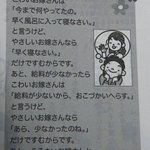 こわいお嫁さんは
「今まで何やってたの。
早く風呂に入って寝なさい。」
と言うけど、
やさしいお嫁さんなら
「早く寝なさい。」
だけですむからです。
あと、給料が少なかったら
こわいお嫁さんは
「給料が少ないから、おこづかいへらす。」
と言うけど、
やさしいお嫁さんなら
「あら、少なかったのね。」
だけですむからです。